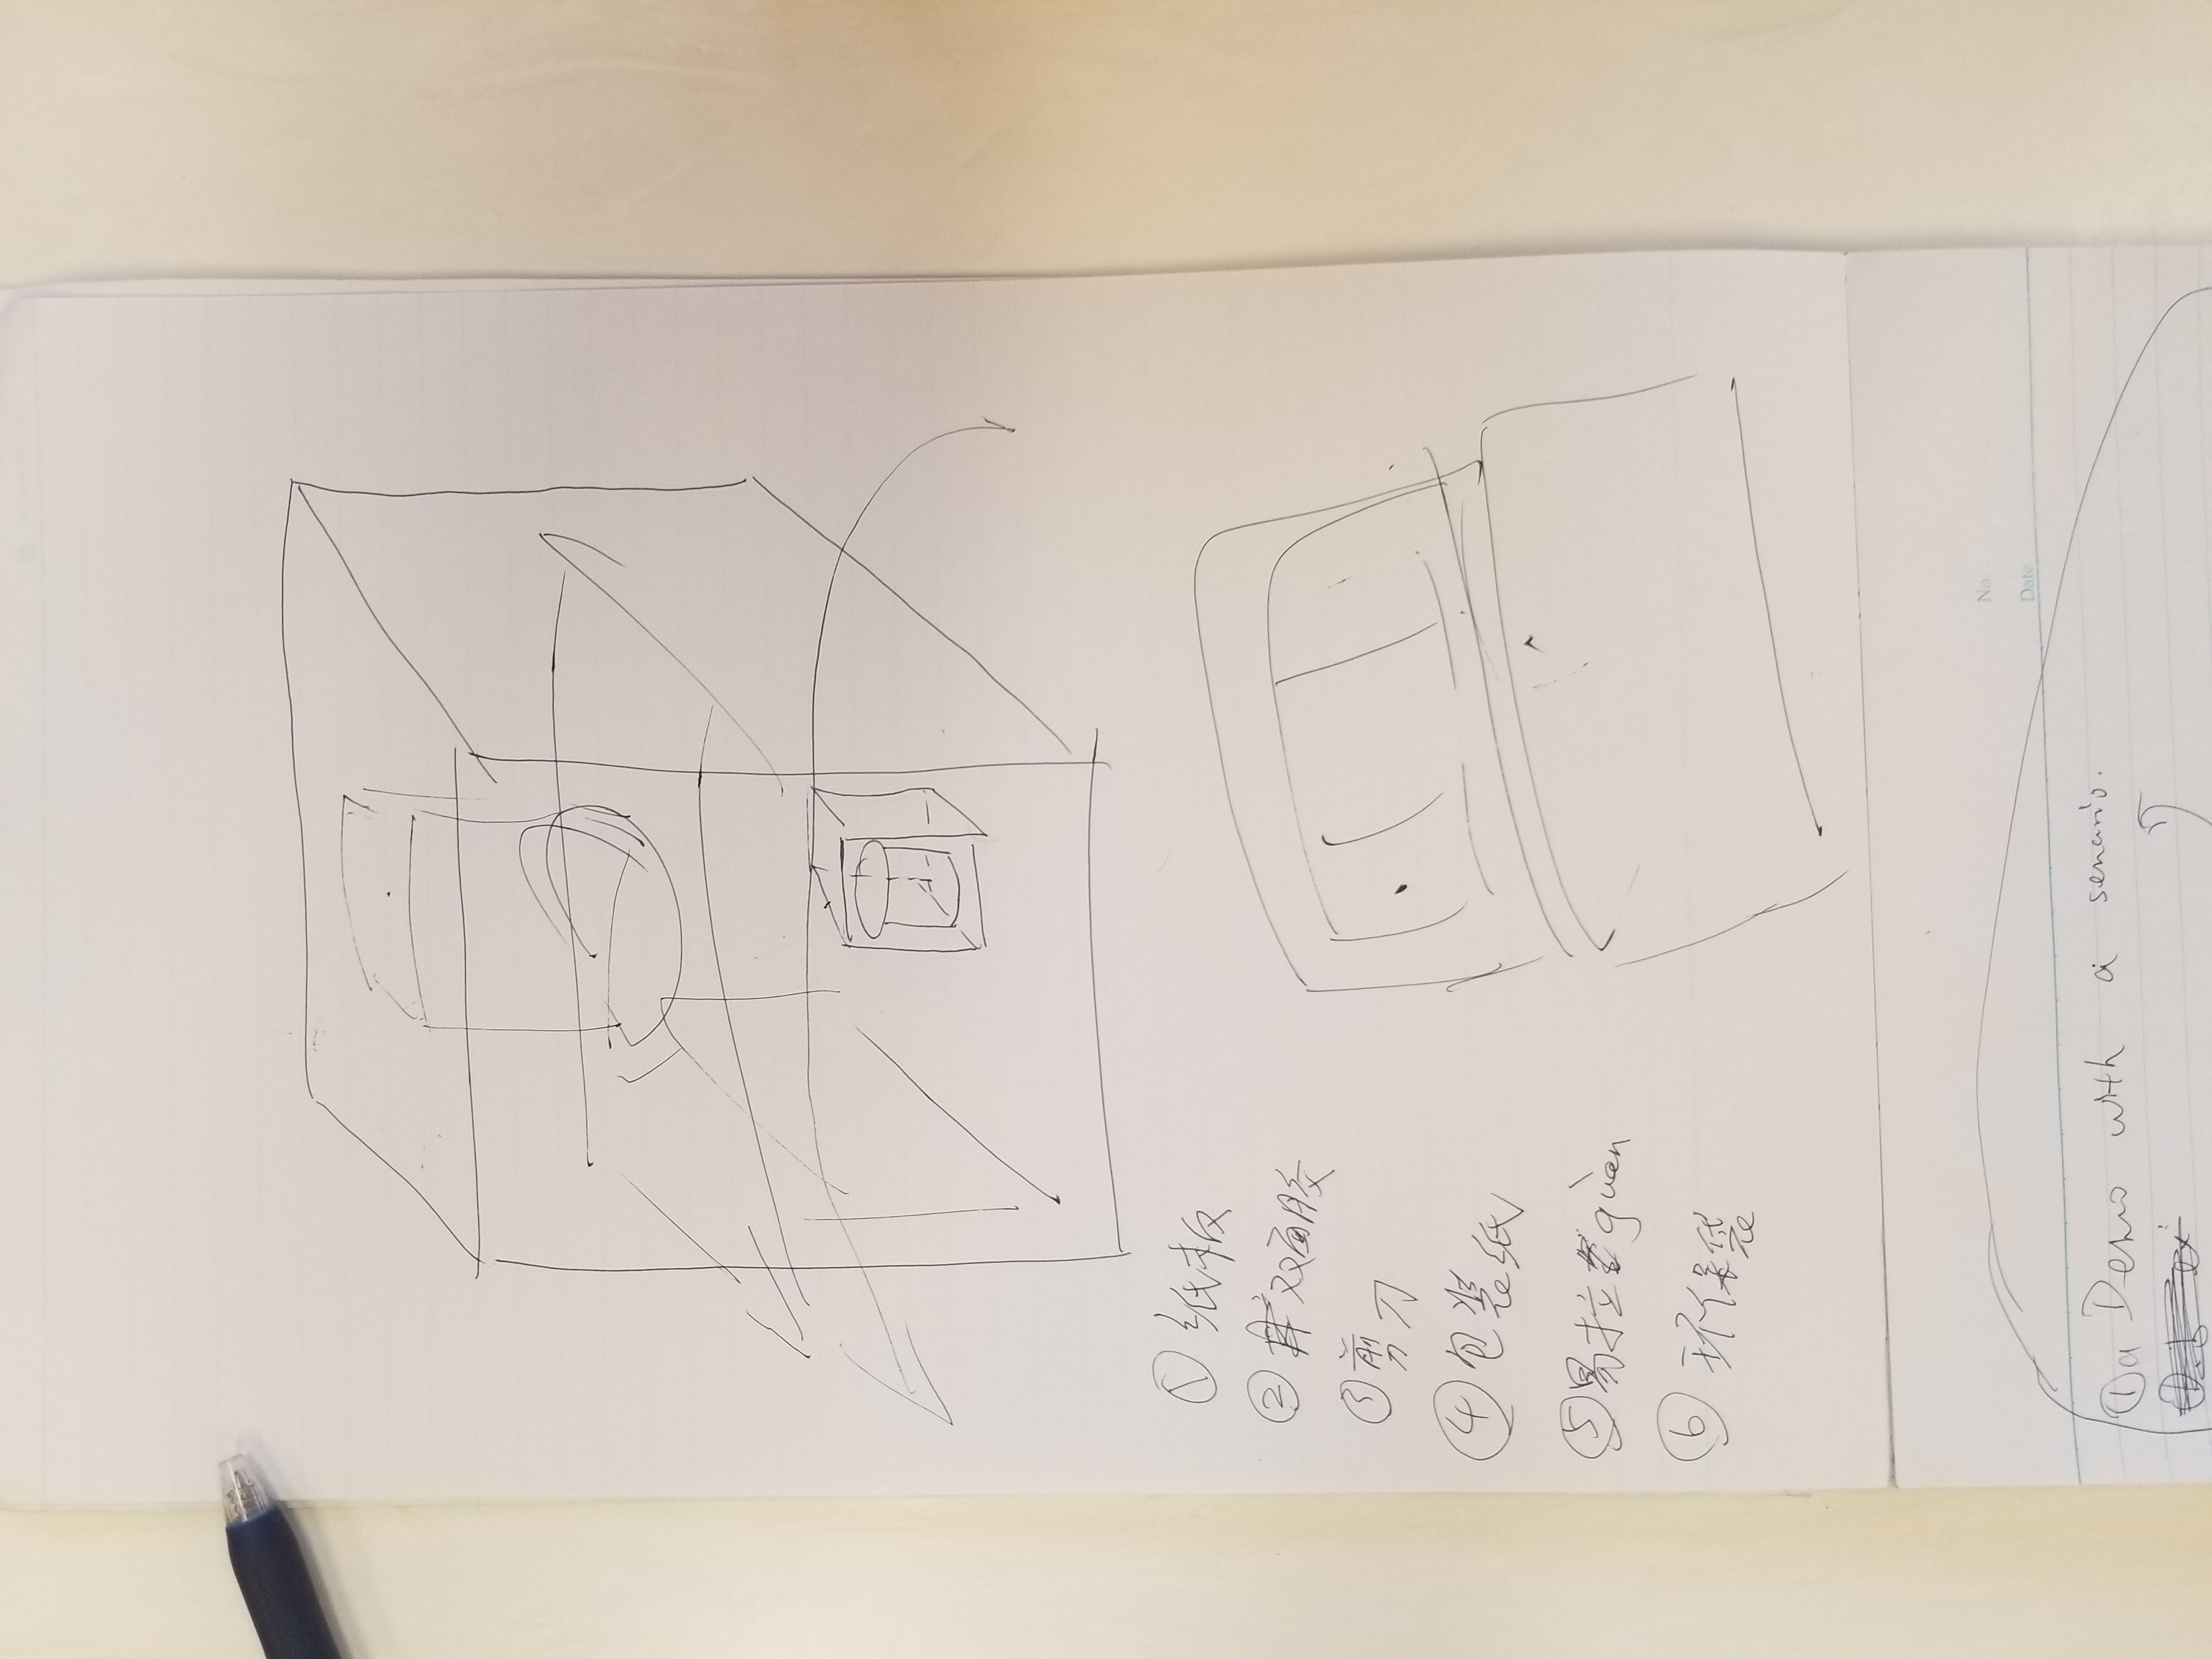 ① 纸板
② 双面胶
③ 剪刀
④ 包装纸
⑤ 易拉guàn
⑥ 环保袋
No.
Date
①a Demo with a senario.